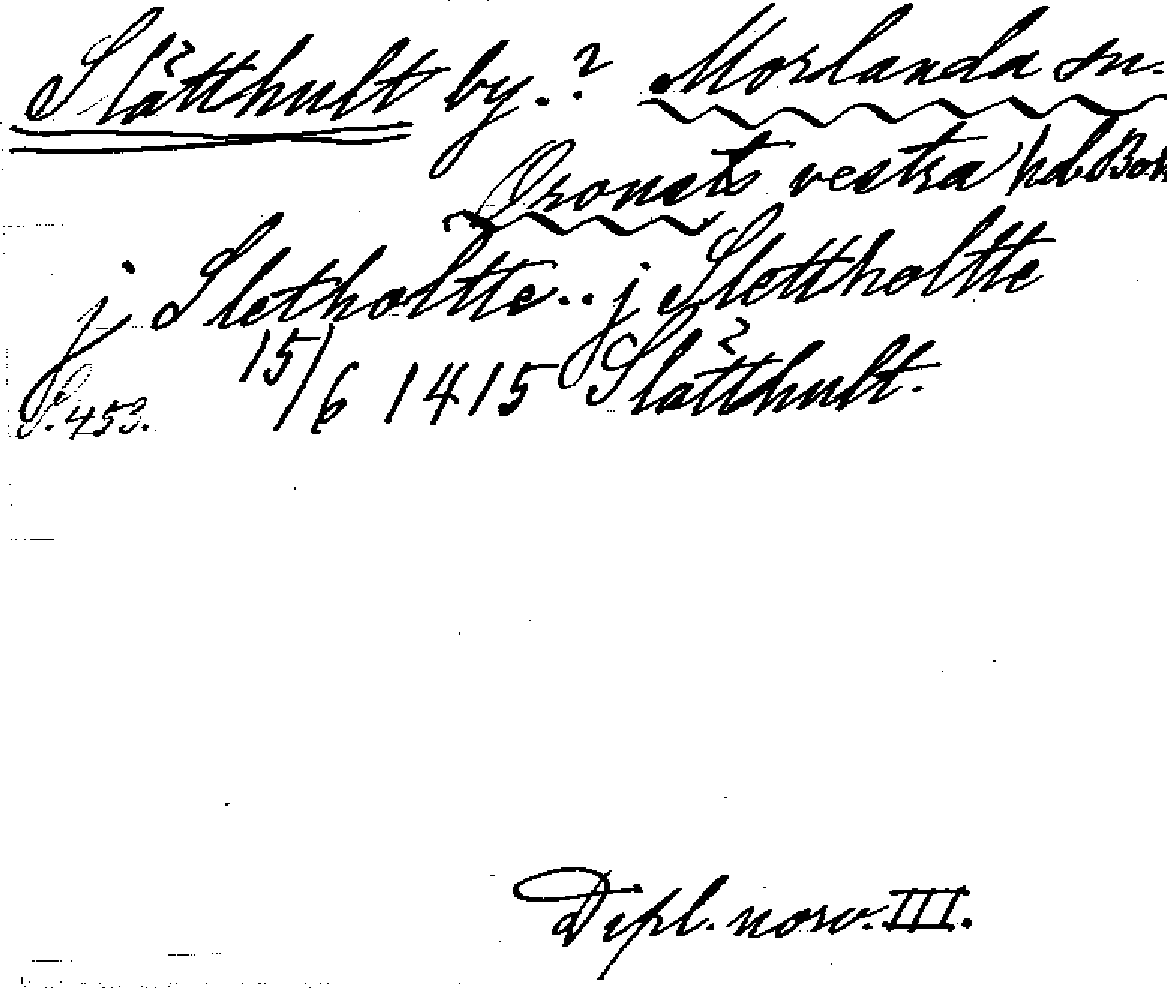 Slätthult by.? Morlanda sn.
Orousts vestra hd. Boh
j Sletholtte.. j Slettholtte
15/6 1415 Slätthult.
S. 453.
Dipl. norv. III.